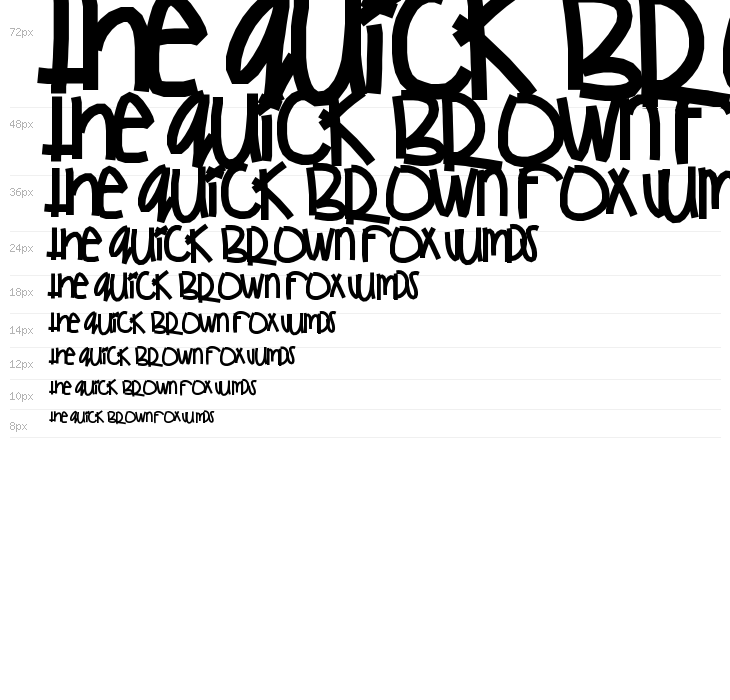 72px the quick BRO
48px the quick BROWN F
36px the quick BROWN FOX JUM
24px the quick BROWN FOX JUMPS
18px the quick BROWN FOX JUMPS
14px the quick BROWN FOX JUMPS
12px the quick BROWN FOX JUMPS
10px the quick BROWN FOX JUMPS
8px the quick BROWN FOX JUMPS